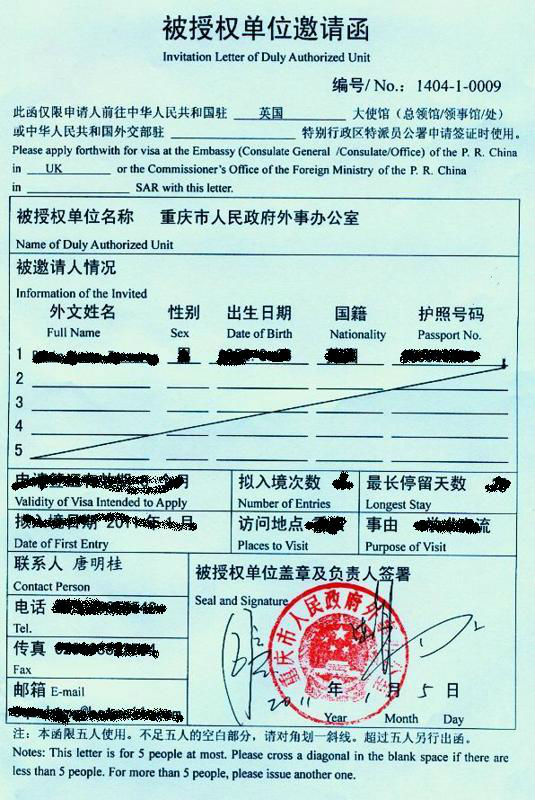 被授权单位邀请函
Invitation Letter of Duly Authorized Unit
编号/ No.: 1404-1-0009
此函仅限申请人前往中华人民共和国驻 英国 大使馆（总领馆/领事馆/处）
或中华人民共和国外交部驻 特别行政区特派员公署申请签证时使用。
Please apply forthwith for visa at the Embassy (Consulate General /Consulate/Office) of the P. R. China
in UK or the Commissioner's Office of the Foreign Ministry of the P. R. China
in SAR with this letter.
被授权单位名称 重庆市人民政府外事办公室
Name of Duly Authorized Unit
被邀请人情况
Information of the Invited
外文姓名 性别 出生日期 国籍 护照号码
Full Name Sex Date of Birth Nationality Passport No.
1
2
3
4
5
拟入境次数 最长停留天数
Validity of Visa Intended to Apply Number of Entries Longest Stay
访问地点 事由
Date of First Entry Places to Visit Purpose of Visit
联系人 唐明桂
Contact Person
被授权单位盖章及负责人签署
Seal and Signature
电话
Tel.
传真
Fax
邮箱 E-mail
重庆市人民政府
2011 年 1 月 5 日
Year Month Day
注：本函限五人使用。不足五人的空白部分，请对角划一斜线。超过五人另行出函。
Notes: This letter is for 5 people at most. Please cross a diagonal in the blank space if there are
less than 5 people. For more than 5 people, please issue another one.